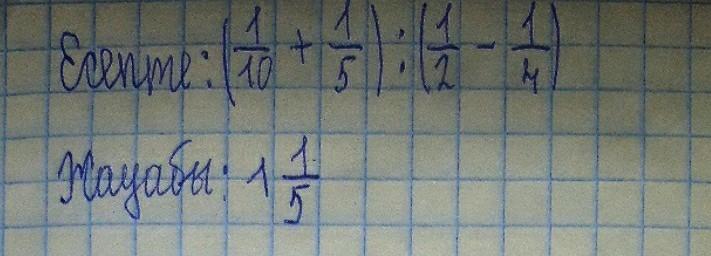 Есепте: (1/10 + 1/5) : (1/2 - 1/4)
Жауабы: 1 1/5